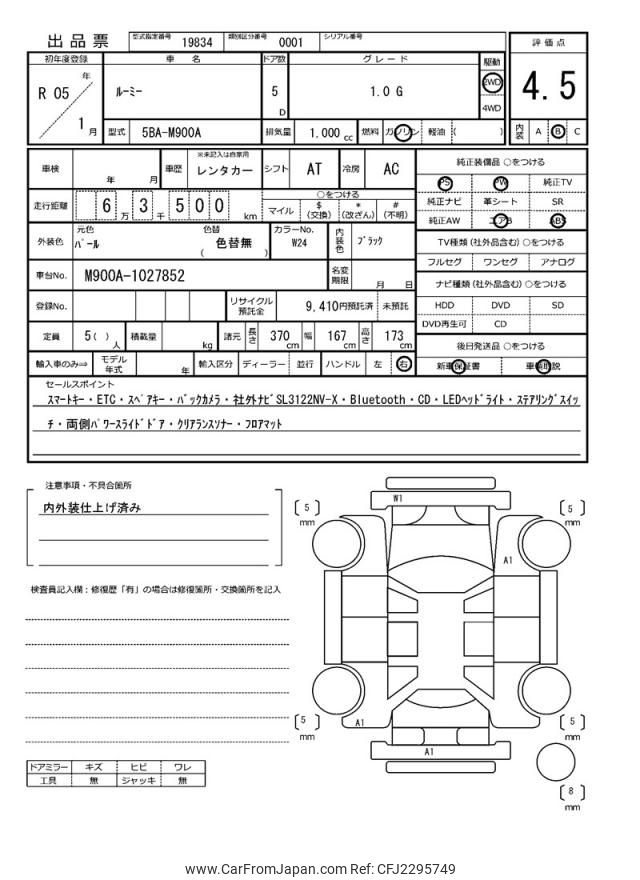 出品票 型式指定番号 19834 類別区分番号 0001 シリアル番号
初年度登録 車 名 ドア数 グレード 駆動 評価点
R 05 年 1 月 ルーミー 5 D 1.0 G 2WD 4WD 4.5
型式 5BA-M900A 排気量 1.000 cc 燃料 ガソリン 軽油 ( ) 内装 A B C
車検 年 月 車歴 ※未記入は自家用 レンタカー シフト AT 冷房 AC 純正装備品 ○をつける
PS PW 純正TV
走行距離 6 万 3 千 5 0 0 km ○をつける 純正ナビ 革シート SR
マイル $ (交換) * (改ざん) # (不明) 純正AW エアB ABS
外装色 元色 パール 色替 色替無 ( ) カラーNo. W24 内装色 ブラック TV種類 (社外品含む) ○をつける
フルセグ ワンセグ アナログ
車台No. M900A-1027852 名変期限 月 日 ナビ種類 (社外品含む) ○をつける
登録No. リサイクル預託金 9,410円預託済 未預託 HDD DVD SD
DVD再生可 CD
定員 5 ( ) 人 積載量 kg 諸元 長さ 370 cm 幅 167 cm 高さ 173 cm 後日発送品 ○をつける
輸入車のみ⇒ モデル年式 年 輸入区分 ディーラー 並行 ハンドル 左 右 新車保証書 車輌取説
セールスポイント
スマートキー・ETC・スペアキー・バックカメラ・社外ナビSL3122NV-X・Bluetooth・CD・LEDヘッドライト・ステアリングスイッ
チ・両側パワースライドドア・クリアランスソナー・フロアマット
注意事項・不具合箇所
内外装仕上げ済み
検査員記入欄：修復歴「有」の場合は修復箇所・交換箇所を記入
W1
5 mm
5 mm
A1
A1
A1
5 mm
5 mm
8 mm
ドアミラー キズ ヒビ ワレ
工具 無 ジャッキ 無
www.CarFromJapan.com Ref: CFJ2295749